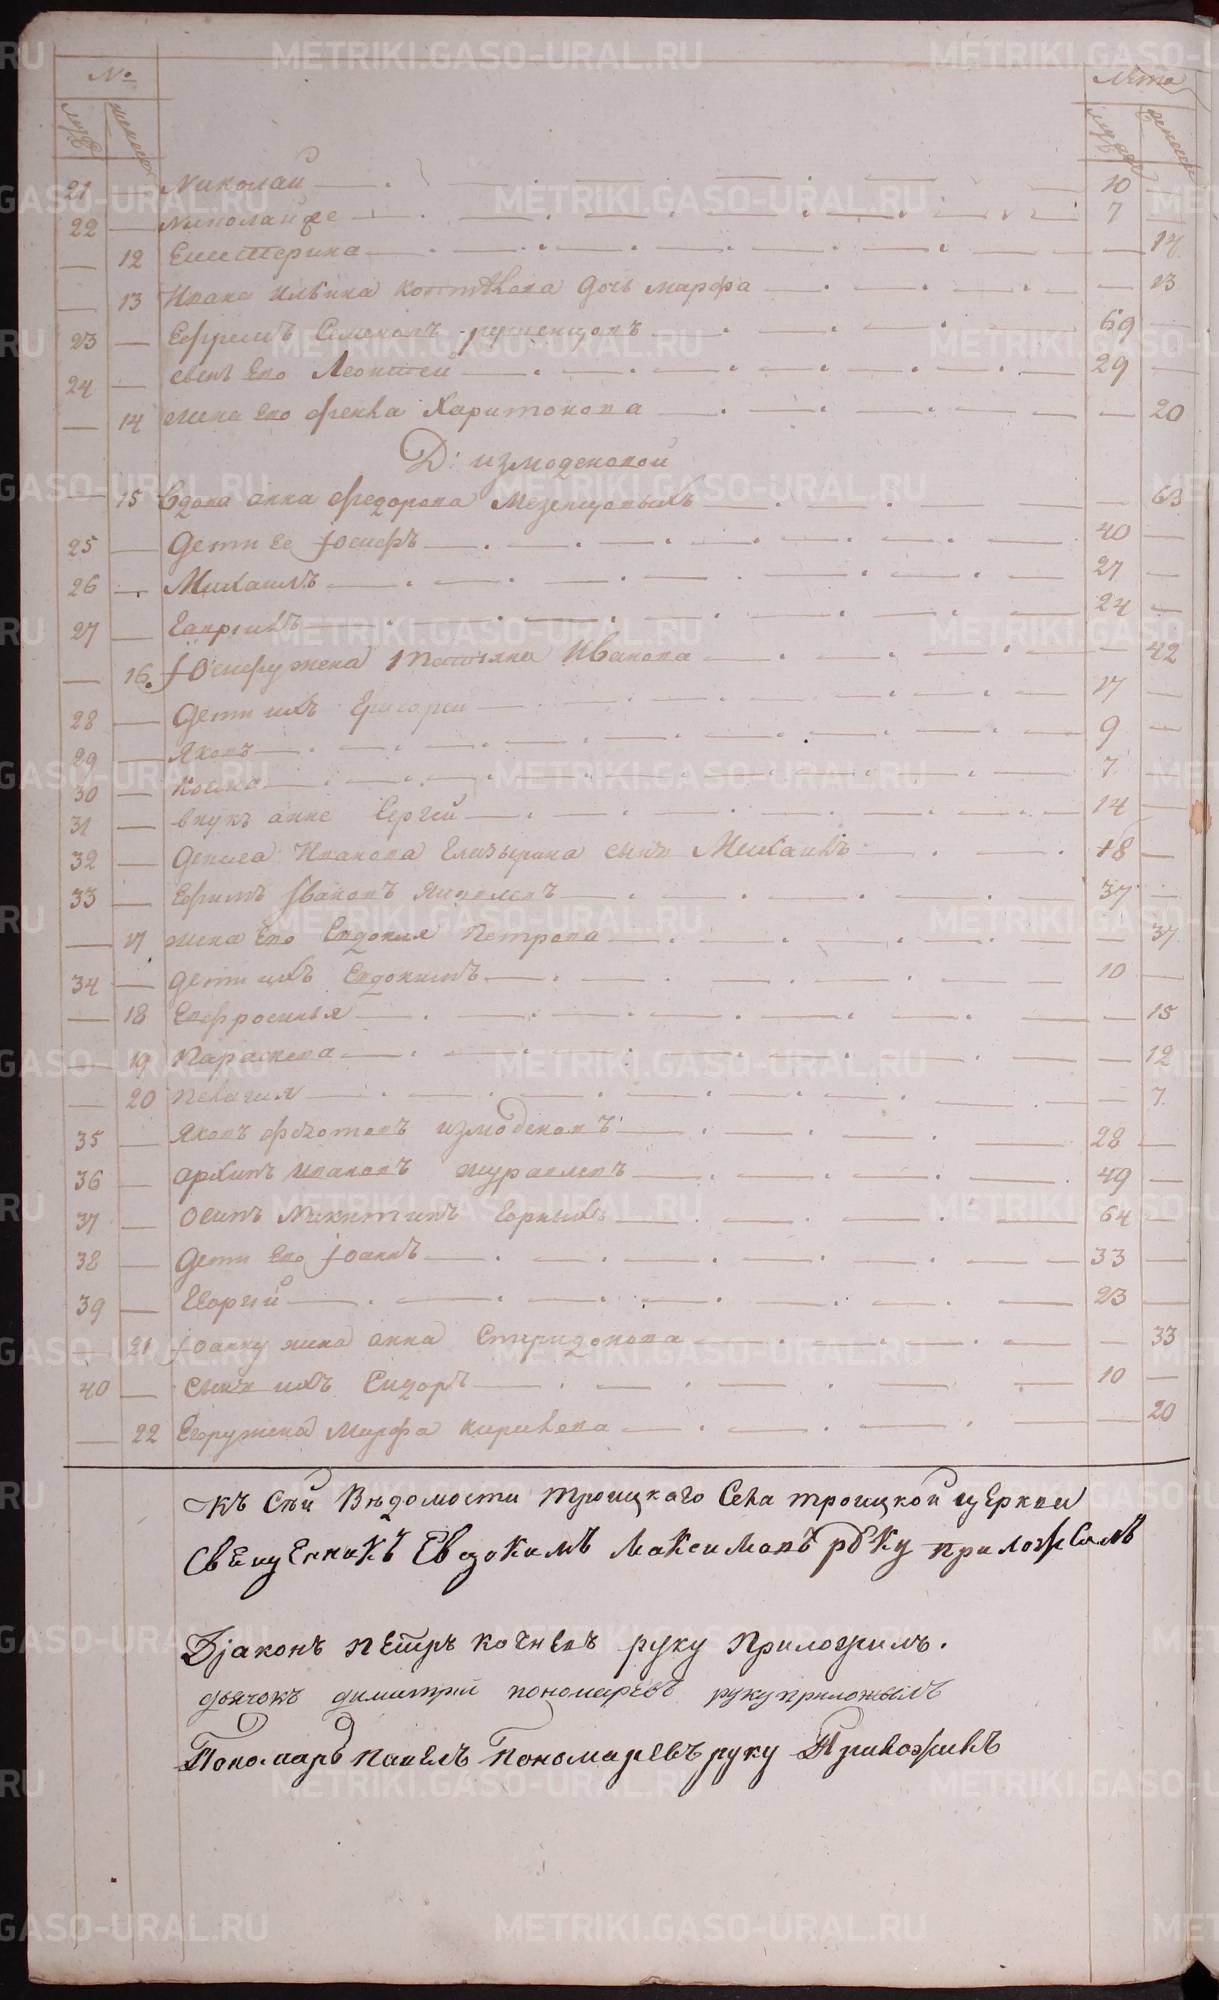 № Лѣта
мужеск женскъ мужеск женскъ
21 — Николай — 10 —
22 — Николай же — 7 —
— 12 Екатерина — — 14
— 13 Ивана Ильина дочь марфа — — 13
23 — Ефремъ Семеновъ — 69 —
24 — сынъ Его Леонтей — 29 —
— 14 жена Его фекла Харитонова — — 20
Д: измоденовой
— 15 вдова анна федорова Мезенцовыхъ — — 63
25 — дети Ее Іосифъ — 40 —
26 — Михаилъ — 27 —
27 — Гавриилъ — 24 —
— 16 Іосифу жена татьяна Иванова — — 42
28 — дети ихъ Григорей — 17 —
29 — Яковъ — 9 —
30 — Косма — 7 —
31 — внукъ анне Сергей — 14 —
32 — Иванова сынъ Михаилъ — 18 —
33 — Ефимъ Івановъ — 37 —
— 17 жена Его Евдокия Петрова — — 37
34 — дети ихъ Евдокимъ — 10 —
— 18 Евфросинья — — 15
— 19 Параскева — — 12
— 20 пелагия — — 7
35 — Яковъ федотовъ измоденовъ — 28 —
36 — архипъ ивановъ журавлевъ — 49 —
37 — Осипъ Никитинъ Горныхъ — 64 —
38 — дети Его Іоаннъ — 33 —
39 — Георгій — 23 —
— 21 Іоанну жена анна Спиридонова — — 33
40 — сынъ ихъ Сидоръ — 10 —
— 22 Егору жена Марфа кирилова — — 20
къ Сей Вѣдомости троицкаго Села троицкой церкви
СвЕщЕнникъ Евдокимъ Максимовъ рȣку приложилъ
Діаконъ пЕтръ кочневъ руку приложилъ.
дьячокъ димитрій пономаревъ руку приложилъ
Пономарь павелъ Пономаревъ руку Приложилъ
METRIKI.GASO-URAL.RU